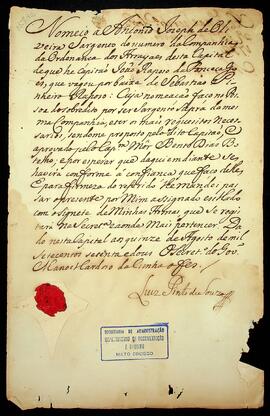 Nomeio a Antonio Joseph de Oli
veira Sargento do numero da Companhia
da Ordenança dos Arrayaes desta Capital
de que he capitão João Raposo da Fonseca
Goes, que vagou por baixa de Sebastião Pi
nheiro Raposo: Cuja nomeação faço no
so dito por ser Sargento Supra da mes
ma Companhia, e ter os mais requisitos Neces
sarios, sendome proposto pelo dito Capitão, e
aprovado pelo Capm. Mór Bento Dias Bo
telho, e por esperar que daqui em diante Se
haverá conforme á confiança que faço delle,
E para firmeza do referido lhe mandei pas
sar o prezente por Mim assignado e Sellado
com o Signete de Minhas Armas, que se regis
tará na Secretra. e aonde Mais pertencer. Da
do nesta Capital aos quinze de Agosto de mil
Setecentos setenta e dous O Secret. do Gov.
Manoel Cardozo da Cunha o fes.
Luiz Pinto de Souza
SECRETARIA DE ADMINISTRAÇÃO
DEPARTAMENTO DE DOCUMENTAÇÃO
E ARQUIVO
MATO GROSSO